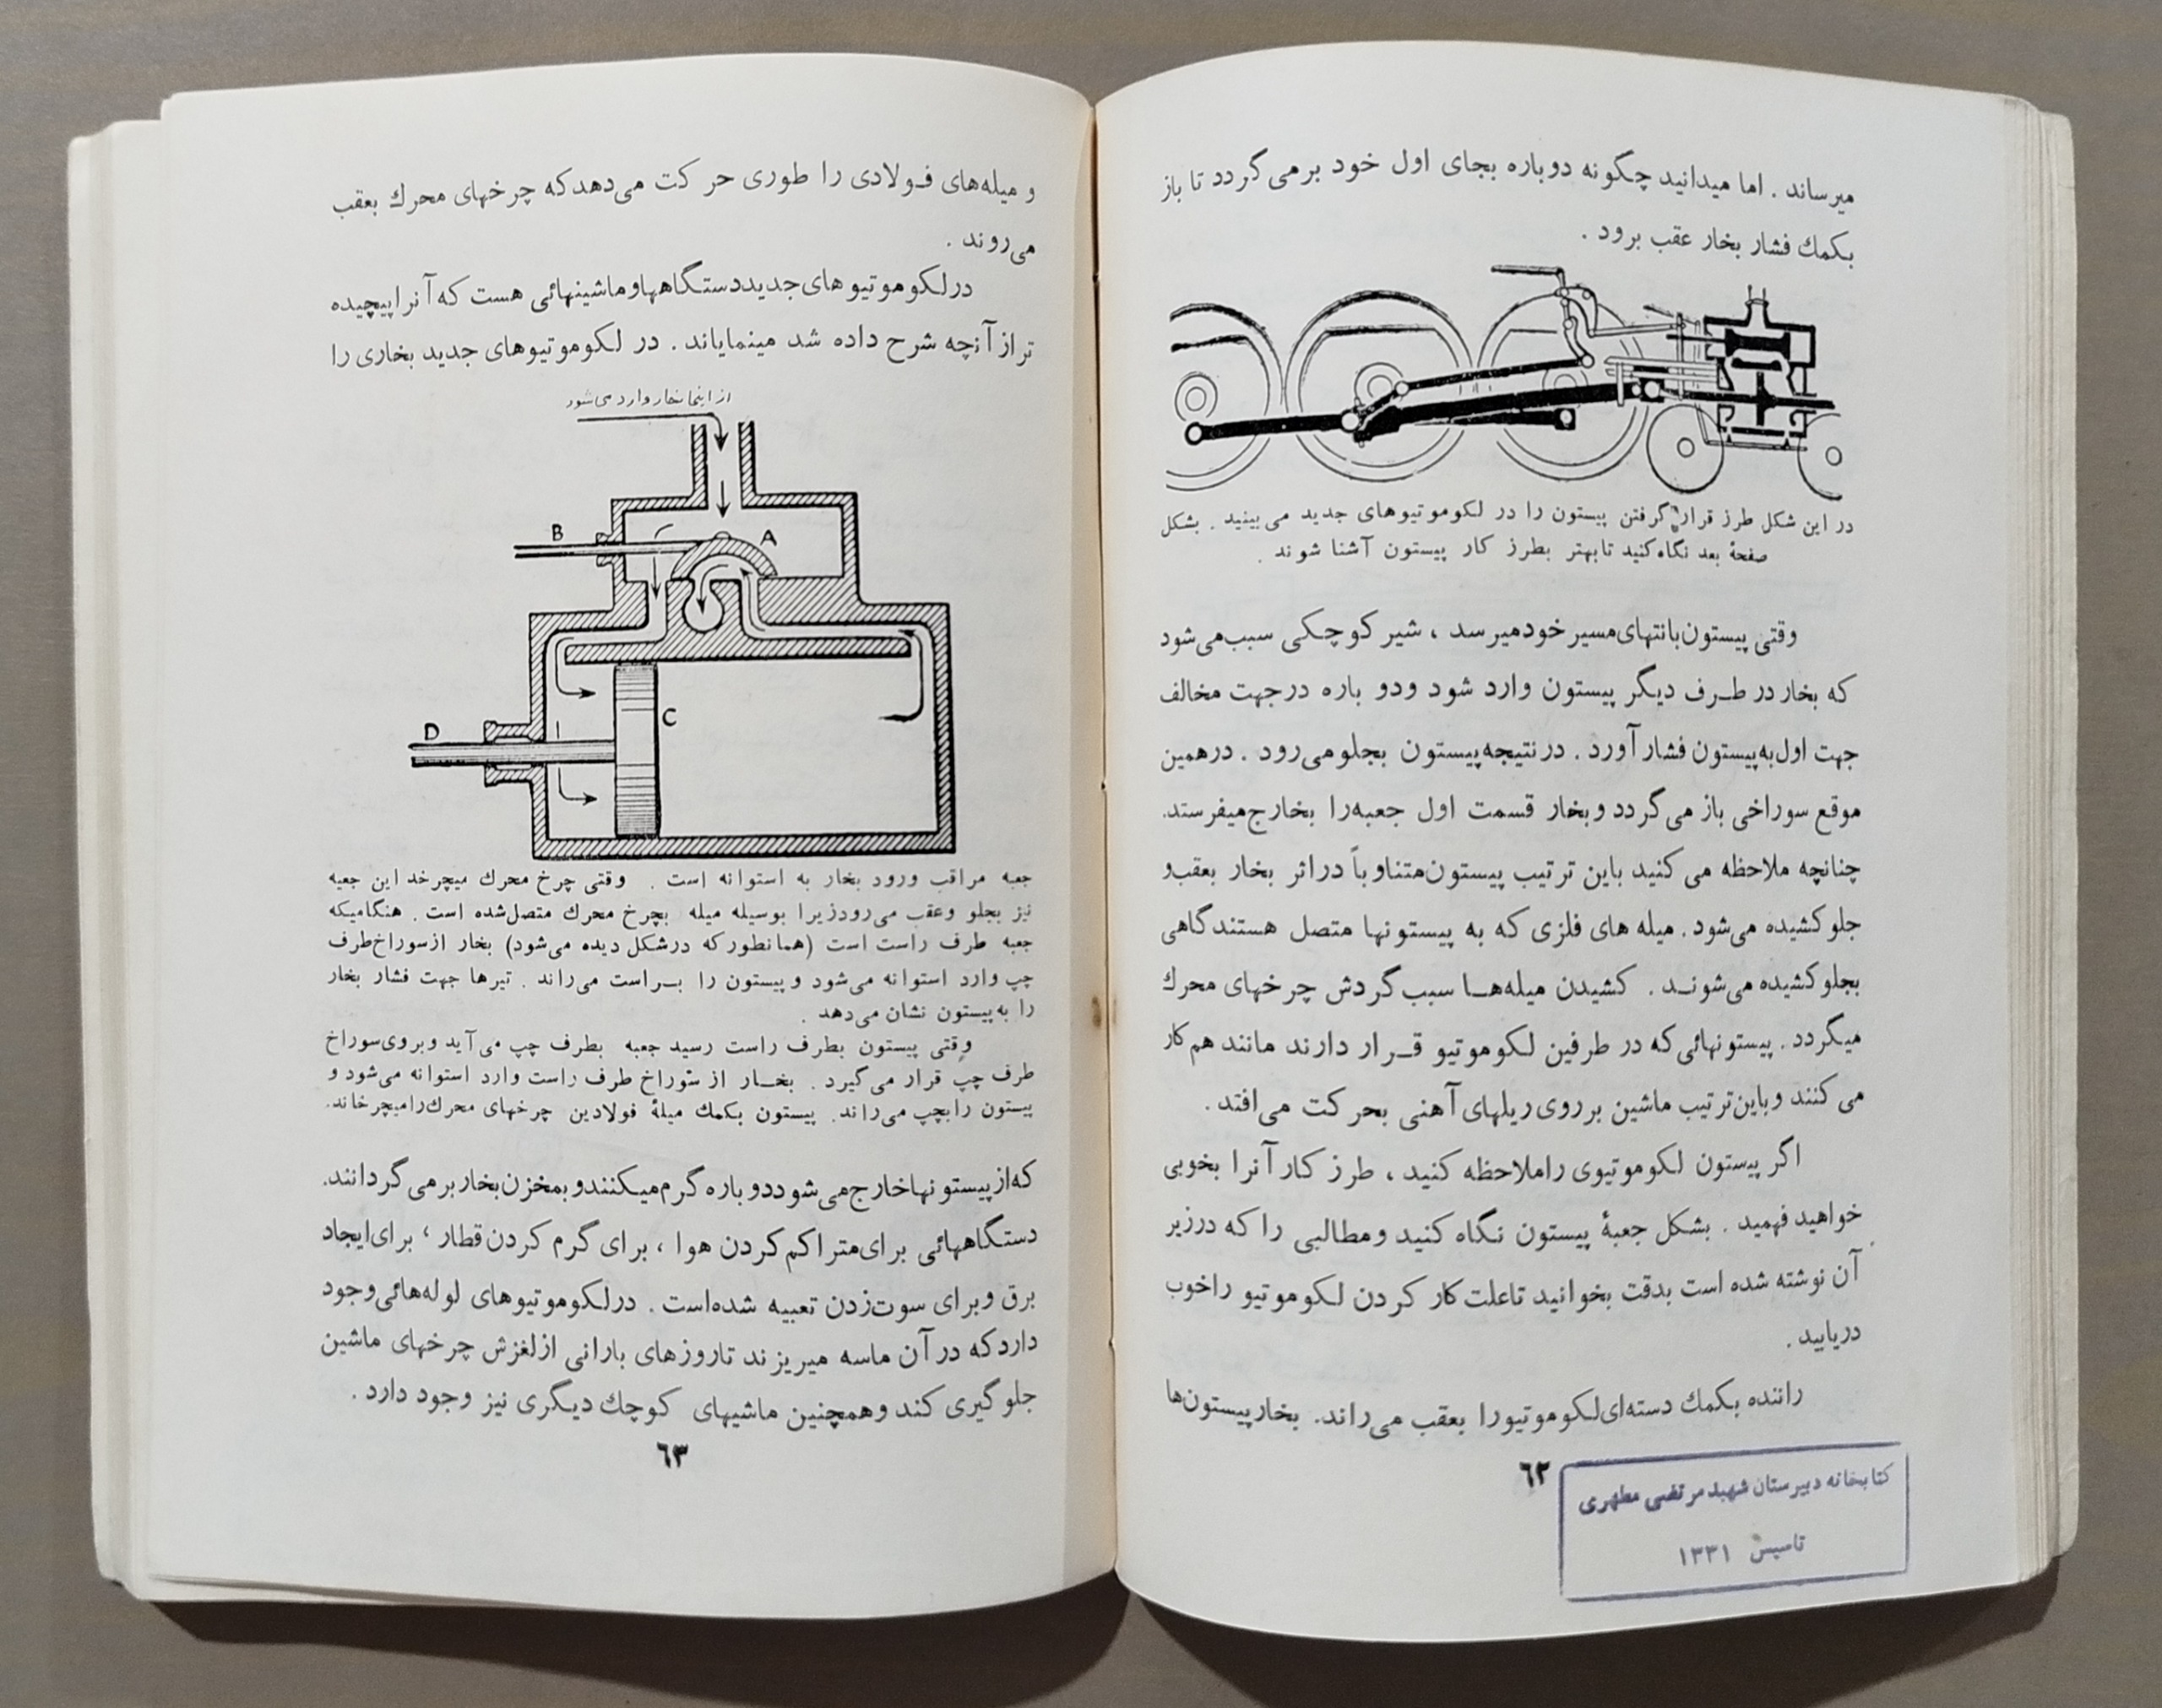 میرساند . اما میدانید چگونه دوباره بجای اول خود برمی گردد تا باز
بکمك فشار بخار عقب برود .
در این شکل طرز قرار گرفتن پیستون را در لکوموتیوهای جدید می بینید . بشکل
صفحهٔ بعد نگاه کنید تا بهتر بطرز کار پیستون آشنا شوند .
وقتی پیستون بانتهای مسیر خود میرسد ، شیر کوچکی سبب می شود
که بخار در طرف دیگر پیستون وارد شود ودو باره درجهت مخالف
جهت اول به پیستون فشار آورد . در نتیجه پیستون بجلو می رود . درهمین
موقع سوراخی باز می گردد و بخار قسمت اول جعبه را بخارج میفرستد.
چنانچه ملاحظه می کنید باین ترتیب پیستون متناوباً دراثر بخار بعقب و
جلو کشیده می شود . میله های فلزی که به پیستونها متصل هستند گاهی
بجلو کشیده می شوند . کشیدن میله‌ها سبب گردش چرخهای محرك
میگردد . پیستونهائی که در طرفین لکوموتیو قرار دارند مانند هم کار
می کنند و باین ترتیب ماشین بر روی ریلهای آهنی بحرکت می افتد .
اگر پیستون لکوموتیوی را ملاحظه کنید ، طرز کار آنرا بخوبی
خواهید فهمید . بشکل جعبهٔ پیستون نگاه کنید و مطالبی را که درزیر
آن نوشته شده است بدقت بخوانید تا علت کار کردن لکوموتیو را خوب
دریابید .
راننده بکمك دسته‌ای لکوموتیو را بعقب می راند. بخار پیستون‌ها
٦٢
کتابخانه دبیرستان شهید مرتضی مطهری
تاسیس ١٣٣١
و میله‌های فولادی را طوری حرکت می دهد که چرخهای محرك بعقب
می روند .
در لکوموتیوهای جدید دستگاهها و ماشینهائی هست که آنرا پیچیده
تر از آنچه شرح داده شد مینمایاند . در لکوموتیوهای جدید بخاری را
از اینجا بخار وارد می شود
B
A
C
D
جعبه مراقب ورود بخار به استوانه است . وقتی چرخ محرك میچرخد این جعبه
نیز بجلو وعقب می رود زیرا بوسیله میله بچرخ محرك متصل شده است . هنگامیکه
جعبه طرف راست است (همانطور که درشکل دیده می شود) بخار از سوراخ طرف
چپ وارد استوانه می شود و پیستون را براست می راند . تیرها جهت فشار بخار
را به پیستون نشان می دهد .
وقتی پیستون بطرف راست رسید جعبه بطرف چپ می آید و بروی سوراخ
طرف چپ قرار می گیرد . بخار از سوراخ طرف راست وارد استوانه می شود و
پیستون را بچپ می راند. پیستون بکمك میلهٔ فولادین چرخهای محرك را میچرخاند.
که از پیستونها خارج می شود دوباره گرم میکنند و بمخزن بخار بر می گردانند.
دستگاههائی برای متراکم کردن هوا ، برای گرم کردن قطار ، برای ایجاد
برق و برای سوت زدن تعبیه شده است . در لکوموتیوهای لوله‌هائی وجود
دارد که در آن ماسه میریزند تا روزهای بارانی از لغزش چرخهای ماشین
جلو گیری کند و همچنین ماشیهای کوچك دیگری نیز وجود دارد .
٦٣